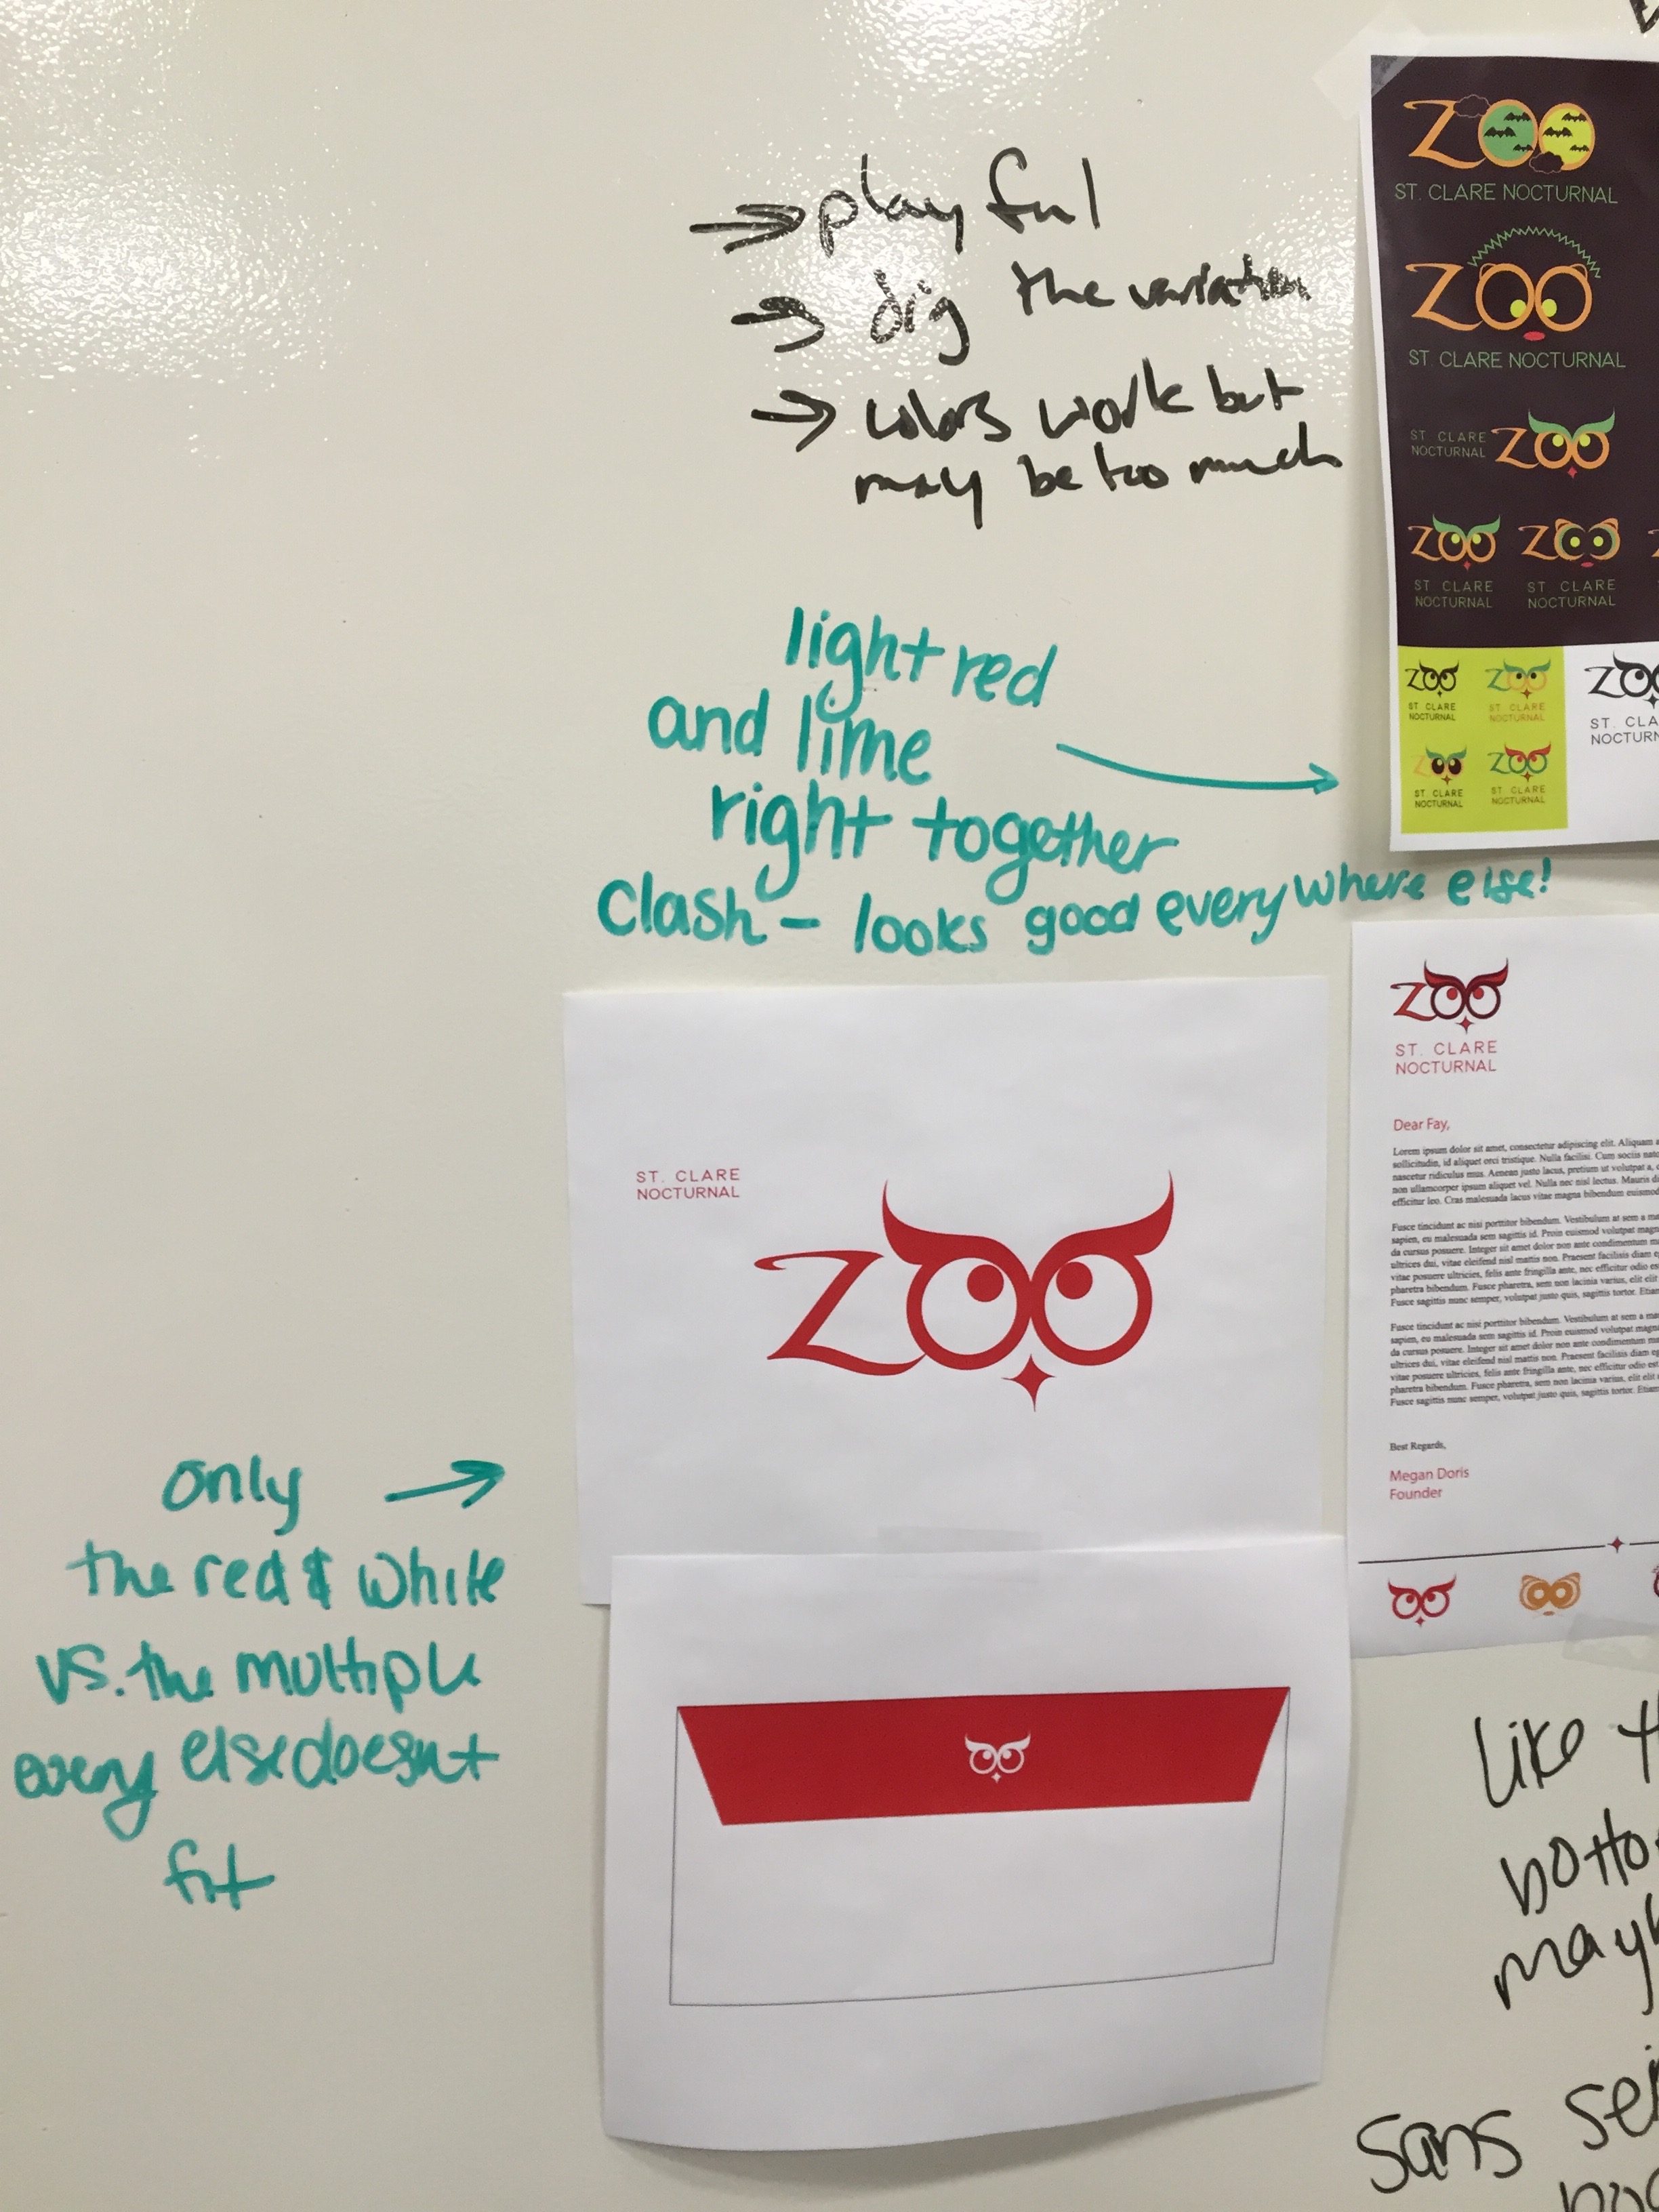 → playful
→ dig the variation
→ colors work but
may be too much
light red
and lime
right together
clash - looks good everywhere else!
only →
the red & white
vs. the multiple
every else doesnt
fit
ZOO
ST. CLARE NOCTURNAL
ZOO
ST. CLARE NOCTURNAL
ST. CLARE
NOCTURNAL
ZOO
ZOO
ST. CLARE
NOCTURNAL
ZOO
ST. CLARE
NOCTURNAL
ZOO
ST. CLARE
NOCTURNAL
ZOO
ST. CLARE
NOCTURNAL
ZOO
ST. CLARE
NOCTURNAL
ZOO
ST. CLARE
NOCTURNAL
ZO
ST. CLA
NOCTURN
ST. CLARE
NOCTURNAL
ZOO
ZOO
ST. CLARE
NOCTURNAL
Dear Fay,
Lorem ipsum dolor sit amet, consectetur adipiscing elit. Aliquam a
sollicitudin, id aliquet orci tristique. Nulla facilisi. Cum sociis nato
nascetur ridiculus mus. Aenean justo lacus, pretium ut volutpat a, c
non ullamcorper ipsum aliquet vel. Nulla nec nisl lectus. Mauris di
efficitur leo. Cras malesuada lacus vitae magna bibendum euismod
Fusce tincidunt ac nisi porttitor bibendum. Vestibulum at sem a ma
sapien, eu malesuada sem sagittis id. Proin euismod volutpat magn
da cursus posuere. Integer sit amet dolor non ante condimentum m
ultrices dui, vitae eleifend nisl mattis non. Praesent facilisis diam e
vitae posuere ultricies, felis ante fringilla ante, nec efficitur odio est
pharetra bibendum. Fusce pharetra, sem non lacinia varius, elit elit
Fusce sagittis nunc semper, volutpat justo quis, sagittis tortor. Etiam
Fusce tincidunt ac nisi porttitor bibendum. Vestibulum at sem a ma
sapien, eu malesuada sem sagittis id. Proin euismod volutpat magn
da cursus posuere. Integer sit amet dolor non ante condimentum m
ultrices dui, vitae eleifend nisl mattis non. Praesent facilisis diam eg
vitae posuere ultricies, felis ante fringilla ante, nec efficitur odio est
pharetra bibendum. Fusce pharetra, sem non lacinia varius, elit elit
Fusce sagittis nunc semper, volutpat justo quis, sagittis tortor. Etiam
Best Regards,
Megan Doris
Founder
like t
botto
mayb
sans se